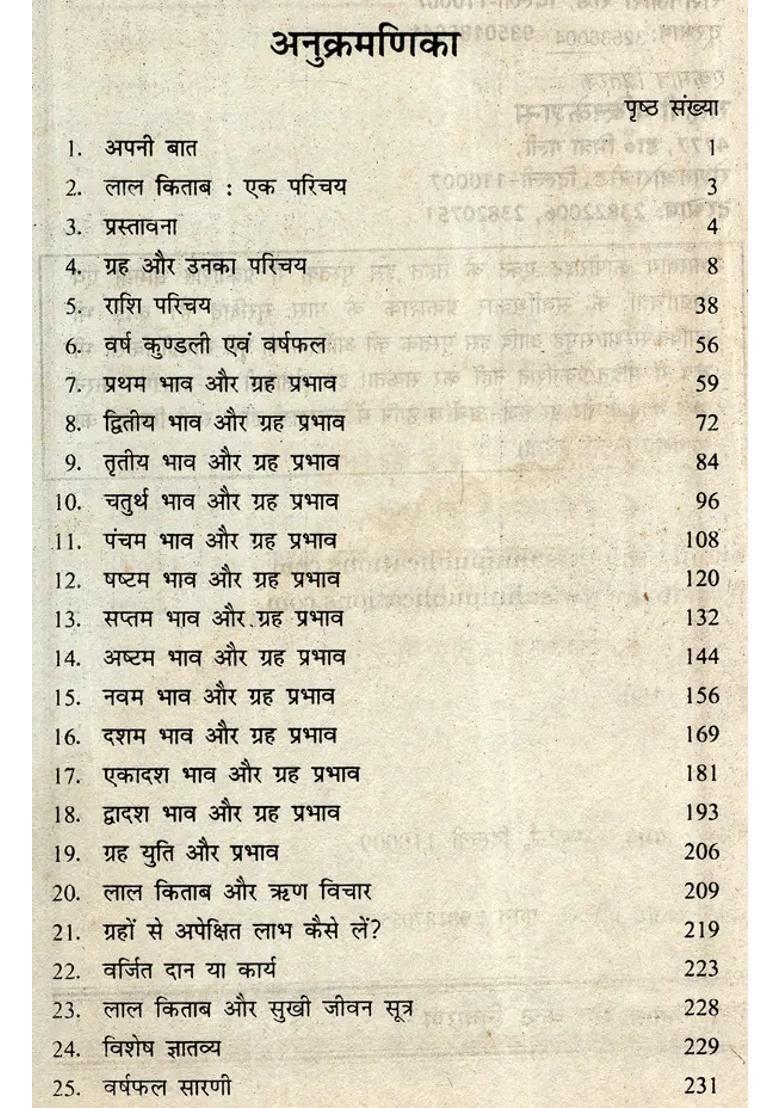 अनुक्रमणिका
पृष्ठ संख्या
1. अपनी बात 1
2. लाल किताब : एक परिचय 3
3. प्रस्तावना 4
4. ग्रह और उनका परिचय 8
5. राशि परिचय 38
6. वर्ष कुण्डली एवं वर्षफल 56
7. प्रथम भाव और ग्रह प्रभाव 59
8. द्वितीय भाव और ग्रह प्रभाव 72
9. तृतीय भाव और ग्रह प्रभाव 84
10. चतुर्थ भाव और ग्रह प्रभाव 96
11. पंचम भाव और ग्रह प्रभाव 108
12. षष्टम भाव और ग्रह प्रभाव 120
13. सप्तम भाव और ग्रह प्रभाव 132
14. अष्टम भाव और ग्रह प्रभाव 144
15. नवम भाव और ग्रह प्रभाव 156
16. दशम भाव और ग्रह प्रभाव 169
17. एकादश भाव और ग्रह प्रभाव 181
18. द्वादश भाव और ग्रह प्रभाव 193
19. ग्रह युति और प्रभाव 206
20. लाल किताब और ऋण विचार 209
21. ग्रहों से अपेक्षित लाभ कैसे लें? 219
22. वर्जित दान या कार्य 223
23. लाल किताब और सुखी जीवन सूत्र 228
24. विशेष ज्ञातव्य 229
25. वर्षफल सारणी 231